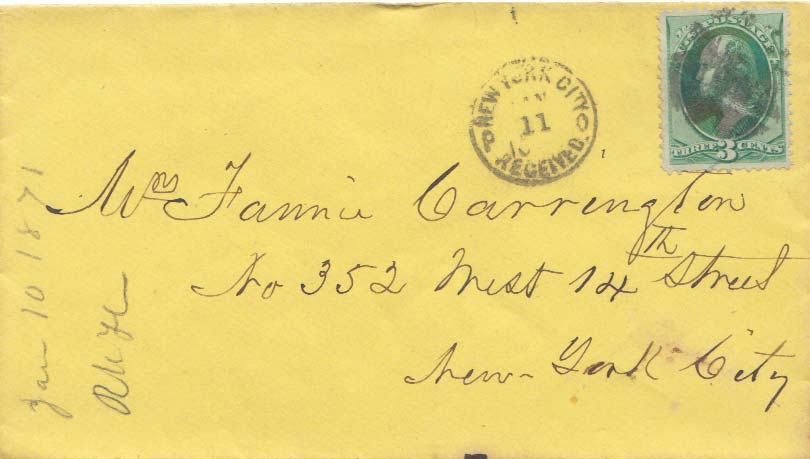 NEW YORK CITY
JAN
11
RECEIVED.
U.S. POSTAGE
THREE 3 CENTS
Mrs Fannie Carrington
No 352 West 14th Street
New-York City
Jan 10 1871